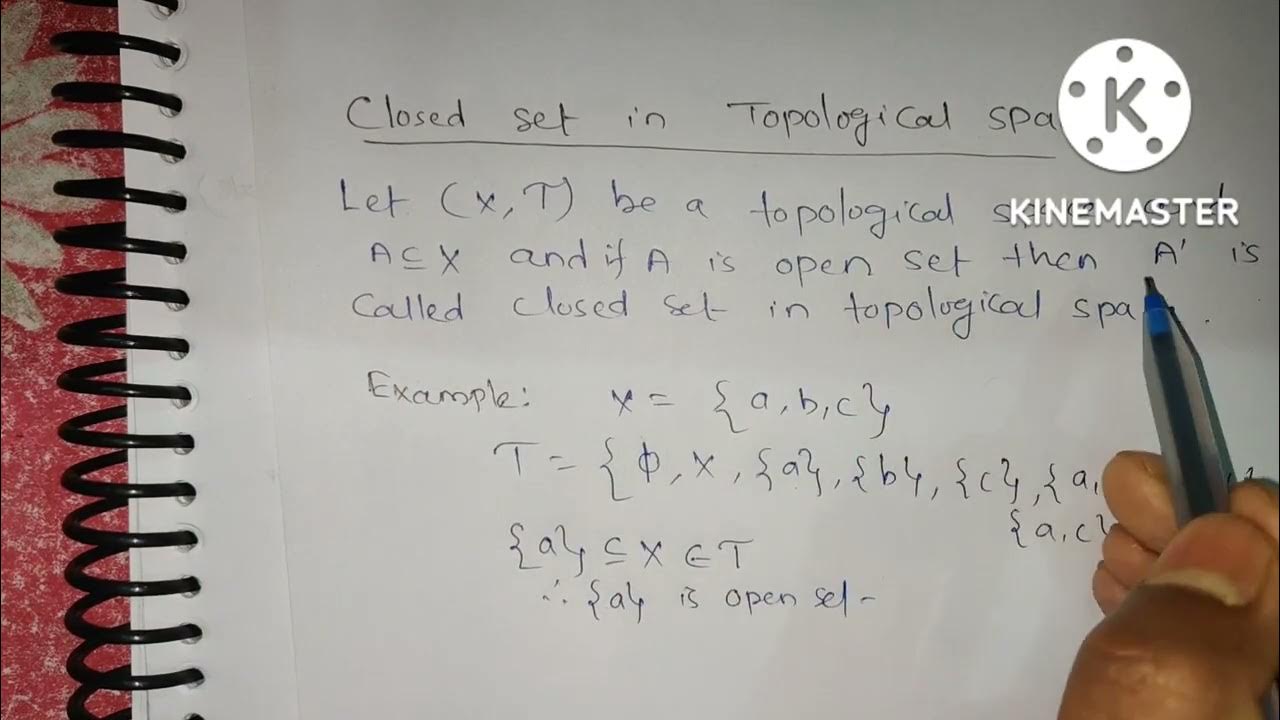 Closed set in Topological spa
K
KINEMASTER
Let (X, T) be a topological
A ⊆ X and if A is open set then A' is
called closed set in topological spa .
Example: X = {a, b, c}
T = {ϕ, X, {a}, {b}, {c}, {a,
{a, c}
{a} ⊆ X ∈ T
∴ {a} is open set -